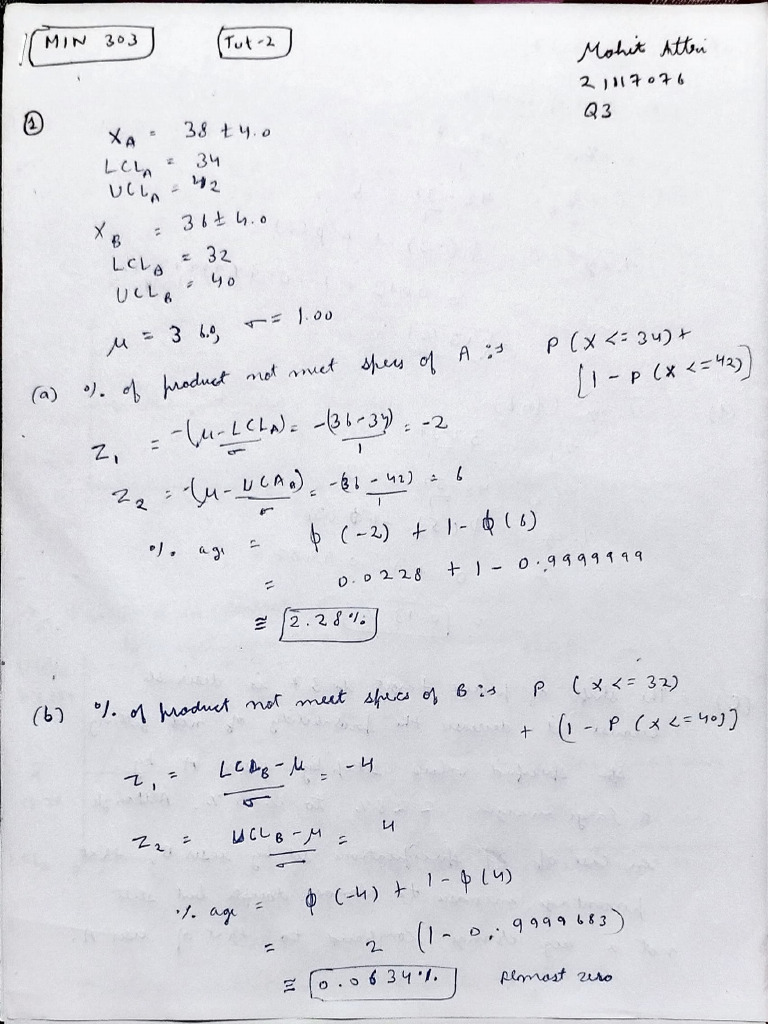 MIN 303 Tut-2
Mohit Attri
21117076
Q3
① X_A = 38 ± 4.0
LCL_A = 34
UCL_A = 42
X_B = 36 ± 4.0
LCL_B = 32
UCL_B = 40
μ = 36.0, σ = 1.00
(a) % of product not meet specs of A is P(X <= 34) +
[1 - P(X <= 42)]
Z₁ = -(μ - LCL_A)/σ = -(36-34)/1 = -2
Z₂ = -(μ - UCL_A)/σ = -(36-42)/1 = 6
% age = ϕ(-2) + 1 - ϕ(6)
= 0.0228 + 1 - 0.9999999
≅ 2.28%
(b) % of product not meet specs of B is P (X <= 32)
+ [1 - P(X <= 40)]
Z₁ = (LCL_B - μ)/σ = -4
Z₂ = (UCL_B - μ)/σ = 4
% age = ϕ(-4) + 1 - ϕ(4)
= 2 (1 - 0.9999683)
≅ 0.0634% Almost zero